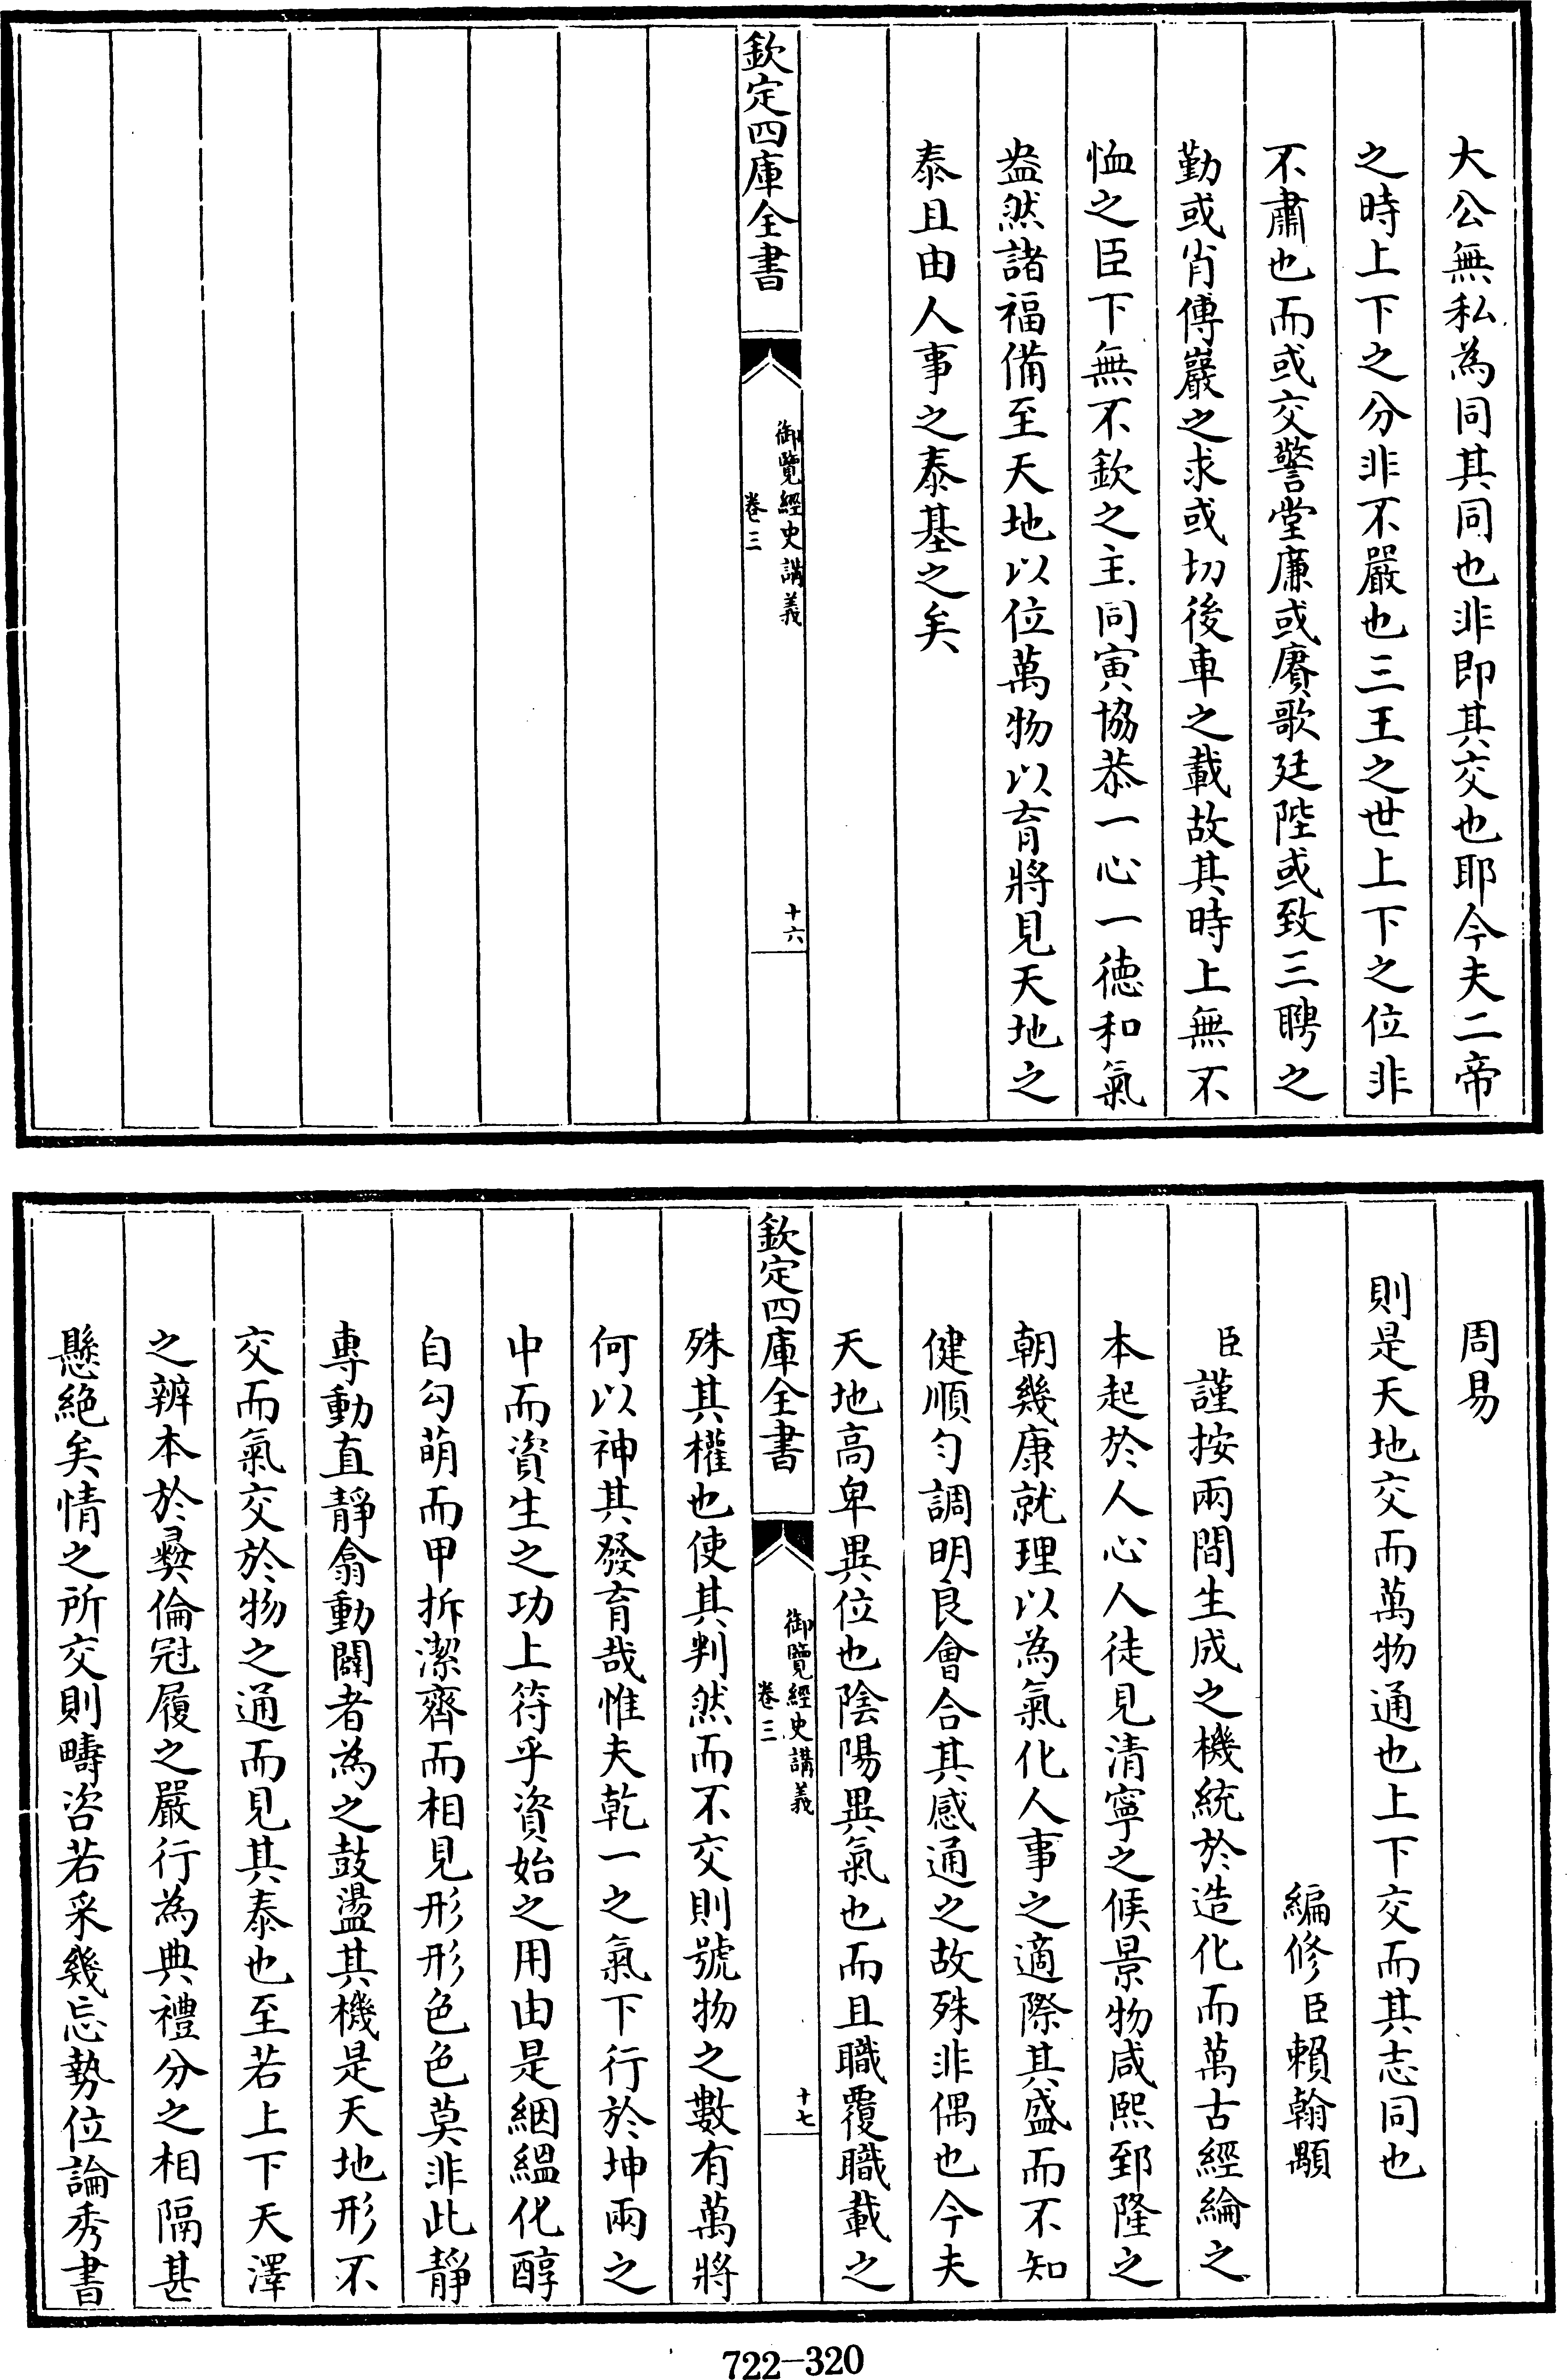 大公無私為同其同也非即其交也耶今夫二帝
之時上下之分非不嚴也三王之世上下之位非
不肅也而或交警堂廉或賡歌廷陛或致三聘之
勤或肖傅巖之求或切後車之載故其時上無不
恤之臣下無不欽之主同寅協恭一心一德和氣
盎然諸福備至天地以位萬物以育將見天地之
泰且由人事之泰基之矣
欽定四庫全書
御覽經史講義
卷三
十六
周易
則是天地交而萬物通也上下交而其志同也
編修臣賴翰顒
臣謹按兩間生成之機統於造化而萬古經綸之
本起於人心人徒見清寧之候景物咸熙郅隆之
朝幾康就理以為氣化人事之適際其盛而不知
健順勻調明良會合其感通之故殊非偶也今夫
天地高卑異位也陰陽異氣也而且職覆職載之
欽定四庫全書
御覽經史講義
卷三
十七
殊其權也使其判然而不交則號物之數有萬將
何以神其發育哉惟夫乾一之氣下行於坤兩之
中而資生之功上符乎資始之用由是絪縕化醇
自勾萌而甲拆潔齊而相見形形色色莫非此靜
專動直靜翕動闢者為之鼓盪其機是天地形不
交而氣交於物之通而見其泰也至若上下天澤
之辨本於彝倫冠履之嚴行為典禮分之相隔甚
懸絕矣情之所交則疇咨若采幾忘勢位論秀書
722-320